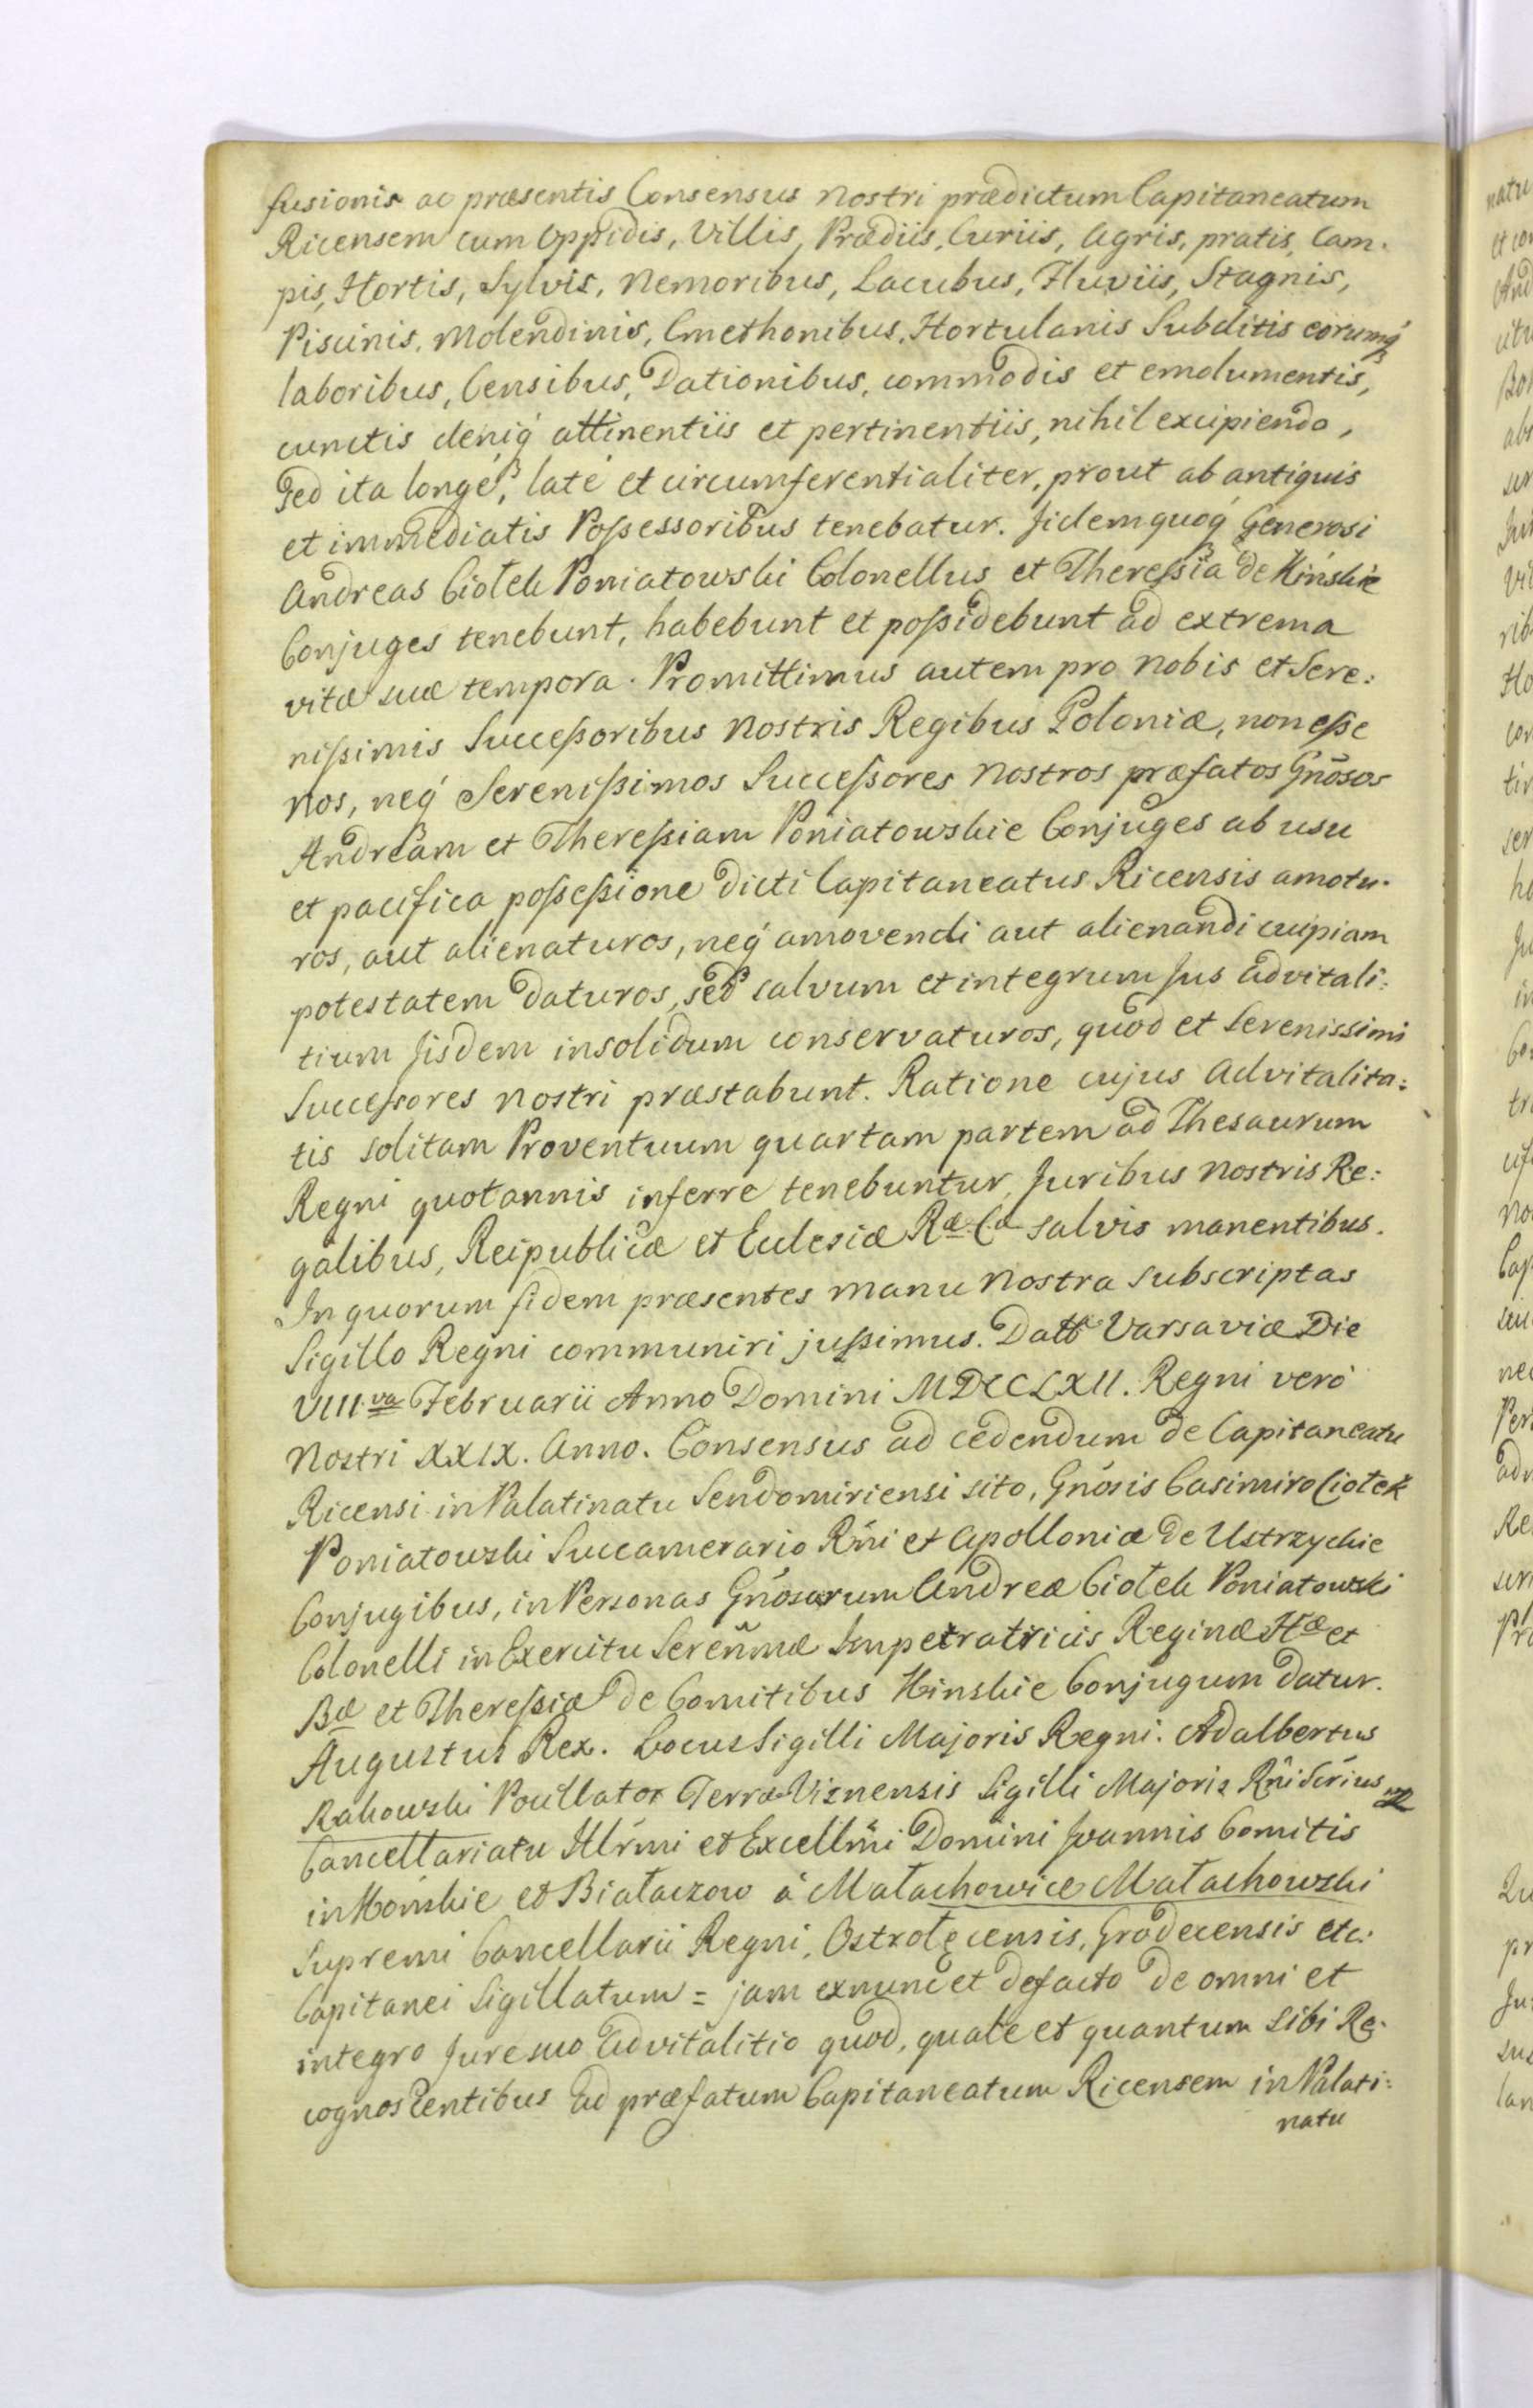 fusionis ac præsentis Consensus Nostri prædictum Capitaneatum
Ricensem cum Oppidis, Villis, Prædiis, Curiis, Agris, pratis, Cam-
pis, Hortis, Sylvis, Nemoribus, Lacubus, Fluviis, Stagnis,
Piscinis, Molendinis, Cmethonibus, Hortulanis Subditis eorumq́
laboribus, Censibus, Dationibus, commodis et emolumentis,
cunctis deniq́ attinentiis et pertinentiis, nihil excipiendo,
Sed ita longé, laté et circumferentialiter, prout ab antiquis
et immediatis Possessoribus tenebatur. Jidem quoq́ Generosi
Andreas Ciołek Poniatowski Colonellus et Theressia de Kińskie
Conjuges tenebunt, habebunt et possidebunt ad extrema
vitæ suæ tempora. Promittimus autem pro Nobis et Sere:
nissimis Successoribus Nostris Regibus Poloniæ, non esse
Nos, neq́ Serenissimos Successores Nostros præfatos Gnōsos
Andream et Theressiam Poniatowskie Conjuges ab usu
et pacifica possessione dicti Capitaneatus Ricensis amotu-
ros, aut alienaturos, neq́ amovendi aut alienandi cuipiam
potestatem daturos, sed salvum et integrum Jus advitali:
tium Jisdem insolidum conservaturos, quod et Serenissimi
Successores Nostri præstabunt. Ratione cujus Advitalita:
tis solitam Proventuum quartam partem ad Thesaurum
Regni quotannis inferre tenebuntur, Juribus Nostris Re:
galibus, Reipublicæ et Ecclesiæ Ræ Cæ salvis manentibus.
In quorum fidem præsentes manu Nostra subscriptas
Sigillo Regni communiri jussimus. Datt Varsaviæ Die
VIII.va Februarii Anno Domini MDCCLXII. Regni veró
Nostri XXIX. Anno. Consensus ad cedendum de Capitaneatu
Ricensi in Palatinatu Sendomiriensi sito, Gnōsis Casimiro Ciołek
Poniatowski Succamerario Rńi et Apolloniæ de Ustrzyckie
Conjugibus, in Personas Gnōsorum Andreæ Ciołek Poniatowski
Colonelli in Exercitu Sereńmæ Imperatricis Reginæ Hæ et
Bæ et Theressiæ de Comitibus Kinskie Conjugum datur.
Augustus Rex. Locus Sigilli Majoris Regni. Adalbertus
Rakowski Pocillator Terræ Visnensis Sigilli Majoris Rńi Scrius
Cancellariatu Illrmi et Excellm̃i Domini Joannis Comitis
in Końskie et Białaczow á Małachowice Małachowski
Supremi Cancellarii Regni, Ostrołęcensis, Grodecensis etc:
Capitanei Sigillatum = jam exnunc et defacto de omni et
integro Jure suo advitalitio quod, quale et quantum sibi Re-
cognoscentibus ad præfatum Capitaneatum Ricensem in Palati:
natu